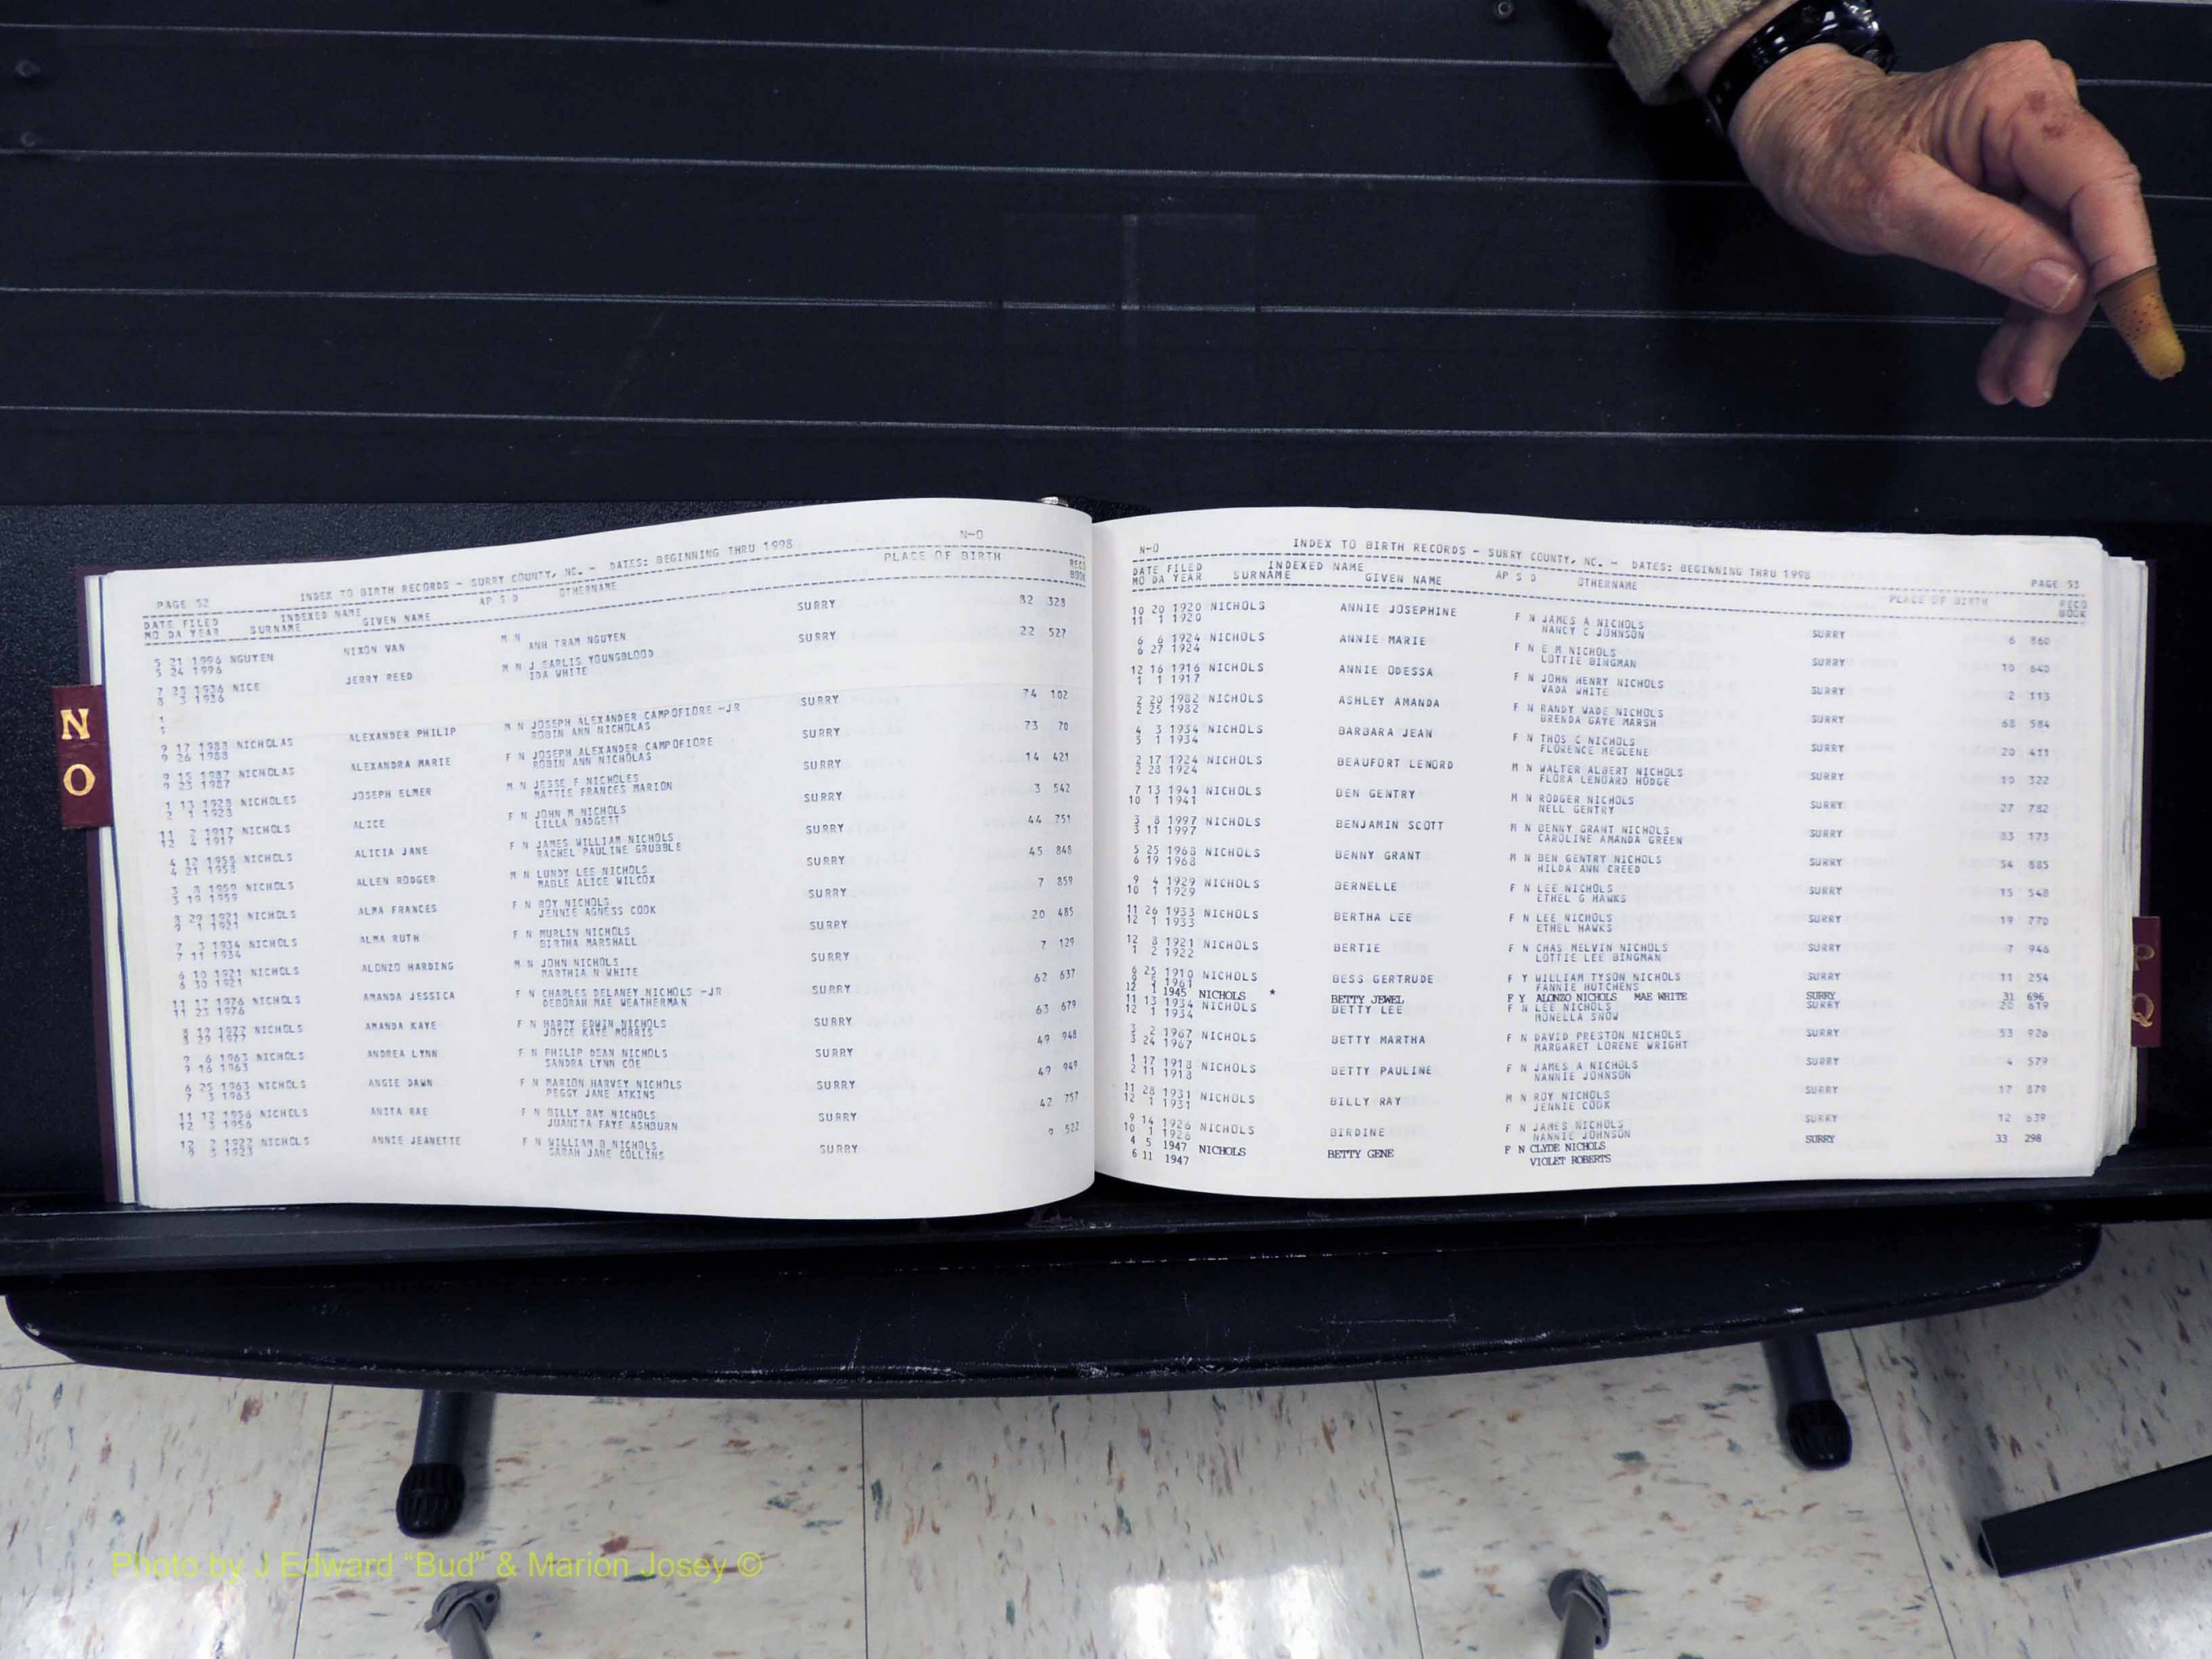 N-O
PAGE 52 INDEX TO BIRTH RECORDS - SURRY COUNTY, NC. - DATES: BEGINNING THRU 1998
DATE FILED INDEXED NAME AP S D OTHERNAME PLACE OF BIRTH RECD
MO DA YEAR SURNAME GIVEN NAME BOOK
5 21 1996 NGUYEN NIXON VAN M N SURRY 82 328
5 24 1996 ANH TRAM NGUYEN
7 20 1936 NICE JERRY REED M N J EARLIS YOUNGBLOOD SURRY 22 527
8 3 1936 IDA WHITE
1
1
1
9 17 1988 NICHOLAS ALEXANDER PHILIP M N JOSEPH ALEXANDER CAMPOFIORE -JR SURRY 74 102
9 26 1988 ROBIN ANN NICHOLAS
9 15 1987 NICHOLAS ALEXANDRA MARIE F N JOSEPH ALEXANDER CAMPOFIORE SURRY 73 70
9 23 1987 ROBIN ANN NICHOLAS
1 13 1928 NICHOLES JOSEPH ELMER M N JESSE F NICHOLES SURRY 14 421
2 1 1928 MATTIE FRANCES MARION
11 2 1917 NICHOLS ALICE F N JOHN M NICHOLS SURRY 3 542
12 4 1917 LILLA BADGETT
4 12 1958 NICHOLS ALICIA JANE F N JAMES WILLIAM NICHOLS SURRY 44 751
4 21 1958 RACHEL PAULINE GRUBBLE
3 8 1959 NICHOLS ALLEN RODGER M N LUNDY LEE NICHOLS SURRY 45 848
3 19 1959 MABLE ALICE WILCOX
8 29 1921 NICHOLS ALMA FRANCES F N ROY NICHOLS SURRY 7 859
9 1 1921 JENNIE AGNESS COOK
7 3 1934 NICHOLS ALMA RUTH F N MURLIN NICHOLS SURRY 20 485
7 11 1934 BIRTHA MARSHALL
6 10 1921 NICHOLS ALONZO HARDING M N JOHN NICHOLS SURRY 7 129
6 30 1921 MARTHIA N WHITE
11 17 1976 NICHOLS AMANDA JESSICA F N CHARLES DELANEY NICHOLS -JR SURRY 62 637
11 23 1976 DEBORAH MAE WEATHERMAN
8 19 1977 NICHOLS AMANDA KAYE F N HARDY EDWIN NICHOLS SURRY 63 679
8 29 1977 JOYCE KAYE MORRIS
9 6 1963 NICHOLS ANDREA LYNN F N PHILIP DEAN NICHOLS SURRY 49 948
9 16 1963 SANDRA LYNN COE
6 25 1963 NICHOLS ANGIE DAWN F N MARION HARVEY NICHOLS SURRY 49 949
7 3 1963 PEGGY JANE ATKINS
11 12 1956 NICHOLS ANITA RAE F N BILLY RAY NICHOLS SURRY 42 757
12 3 1956 JUANITA FAYE ASHBURN
12 2 1922 NICHOLS ANNIE JEANETTE F N WILLIAM B NICHOLS SURRY 9 522
9 3 1923 SARAH JANE COLLINS
N-O INDEX TO BIRTH RECORDS - SURRY COUNTY, NC. - DATES: BEGINNING THRU 1998 PAGE 53
DATE FILED INDEXED NAME AP S D OTHERNAME PLACE OF BIRTH RECD
MO DA YEAR SURNAME GIVEN NAME BOOK
10 20 1920 NICHOLS ANNIE JOSEPHINE F N JAMES A NICHOLS SURRY 6 860
11 1 1920 NANCY C JOHNSON
6 6 1924 NICHOLS ANNIE MARIE F N E M NICHOLS SURRY 10 640
6 27 1924 LOTTIE BINGMAN
12 16 1916 NICHOLS ANNIE ODESSA F N JOHN HENRY NICHOLS SURRY 2 313
1 1 1917 VADA WHITE
2 20 1982 NICHOLS ASHLEY AMANDA F N RANDY WADE NICHOLS SURRY 68 584
2 25 1982 BRENDA GAYE MARSH
4 3 1934 NICHOLS BARBARA JEAN F N THOS C NICHOLS SURRY 20 411
5 1 1934 FLORENCE MEGLENE
2 17 1924 NICHOLS BEAUFORT LENORD M N WALTER ALBERT NICHOLS SURRY 10 322
2 28 1924 FLORA LENOARD HODGE
7 13 1941 NICHOLS BEN GENTRY M N RODGER NICHOLS SURRY 27 782
10 1 1941 NELL GENTRY
3 8 1997 NICHOLS BENJAMIN SCOTT M N BENNY GRANT NICHOLS SURRY 83 173
3 11 1997 CAROLINE AMANDA GREEN
5 25 1968 NICHOLS BENNY GRANT M N BEN GENTRY NICHOLS SURRY 54 885
6 19 1968 HILDA ANN CREED
9 4 1929 NICHOLS BERNELLE F N LEE NICHOLS SURRY 15 548
10 1 1929 ETHEL G HAWKS
11 26 1933 NICHOLS BERTHA LEE F N LEE NICHOLS SURRY 19 770
12 1 1933 ETHEL HAWKS
12 8 1921 NICHOLS BERTIE F N CHAS MELVIN NICHOLS SURRY 7 946
1 2 1922 LOTTIE LEE BINGMAN
6 25 1910 NICHOLS BESS GERTRUDE F Y WILLIAM TYSON NICHOLS SURRY 11 254
1961 FANNIE HUTCHENS
12 1 1945 NICHOLS * BETTY JEWEL F Y ALONZO NICHOLS MAE WHITE SURRY 31 696
11 13 1934 NICHOLS BETTY LEE F N LEE NICHOLS SURRY 20 619
12 1 1934 MONELLA SNOW
3 2 1967 NICHOLS BETTY MARTHA F N DAVID PRESTON NICHOLS SURRY 53 926
3 24 1967 MARGARET LORENE WRIGHT
1 17 1918 NICHOLS BETTY PAULINE F N JAMES A NICHOLS SURRY 4 579
2 11 1918 NANNIE JOHNSON
11 28 1931 NICHOLS BILLY RAY M N ROY NICHOLS SURRY 17 879
12 1 1931 JENNIE COOK
9 14 1926 NICHOLS BIRDINE F N JAMES NICHOLS SURRY 12 639
10 1 1926 NANNIE JOHNSON
4 5 1947 NICHOLS BETTY GENE F N CLYDE NICHOLS SURRY 33 298
6 11 1947 VIOLET ROBERTS
N
O
P
Q
Photo by J Edward “Bud” & Marion Josey ©